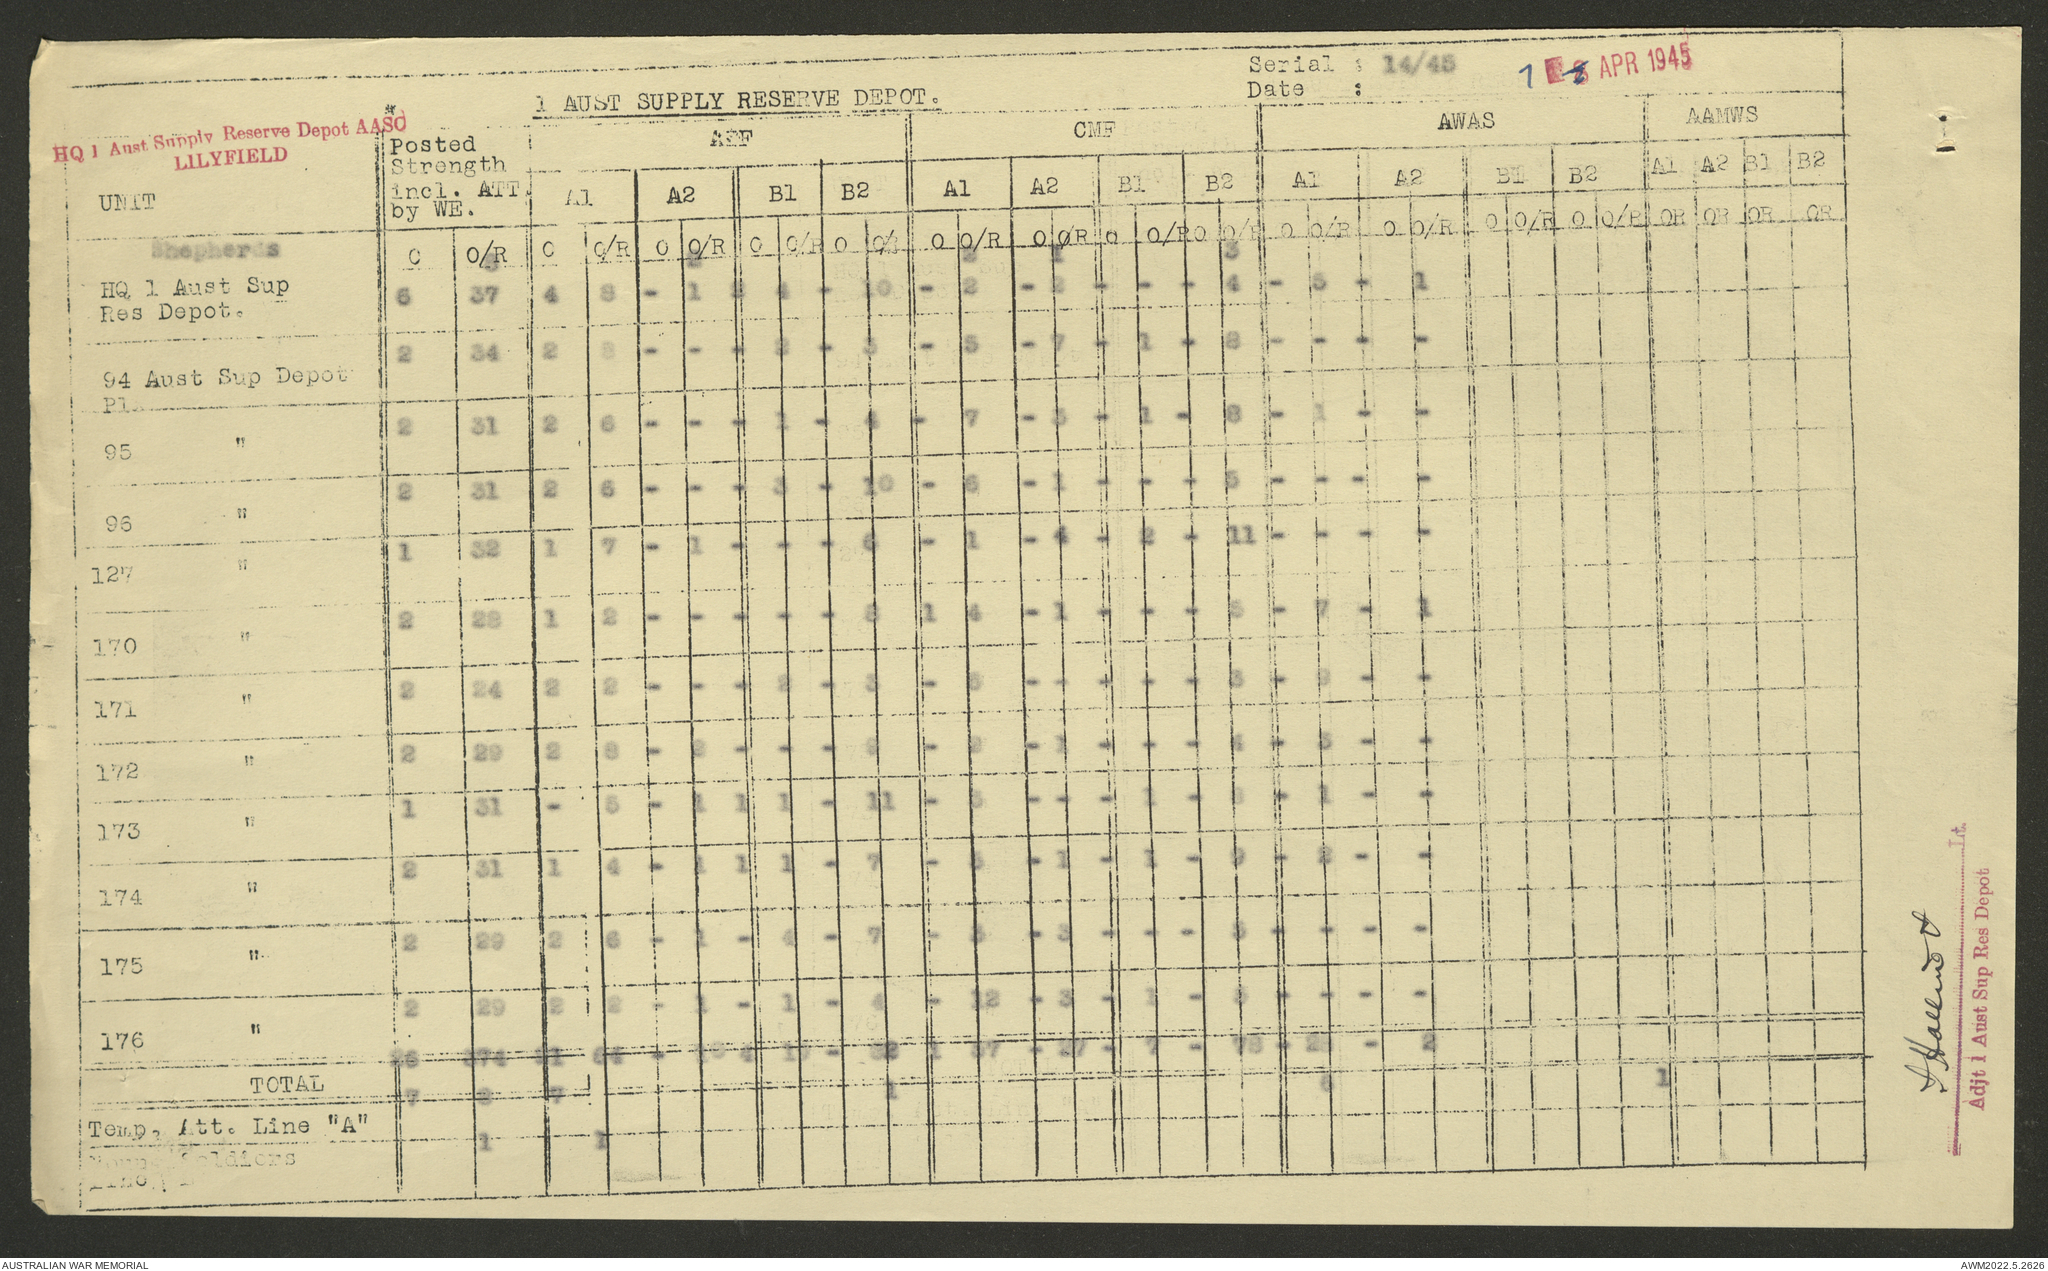 Serial : 14/45
Date :
7 APR 1945
1 AUST SUPPLY RESERVE DEPOT.
HQ 1 Aust Supply Reserve Depot AASC
LILYFIELD
UNIT
* Posted Strength incl. ATT. by WE.
AIF CMF AWAS AAMWS
A1 A2 B1 B2 A1 A2 B1 B2 A1 A2 B1 B2 A1 A2 B1 B2
O O/R O O/R O O/R O O/R O O/R O O/R O O/R O O/R O O/R O O/R O O/R O O/R O O/R OR OR OR OR
Shepherds
HQ 1 Aust Sup
Res Depot. 6 37 4 8 - 1 4 - 10 - 2 - 2 - - - 4 - 5 - 1
94 Aust Sup Depot
Pl. 2 34 2 8 - - - 2 - 3 - 5 - 7 - 1 - 8 - - - -
95 " 2 31 2 6 - - - 1 - 4 - 7 - 3 - 1 - 8 - 1 - -
96 " 2 31 2 6 - - - 3 - 10 - 6 - 1 - - - 5 - - - -
127 " 1 32 1 7 - 1 - - - 6 - 1 - 4 - 2 - 11 - - - -
170 " 2 28 1 2 - - - - - 8 1 4 - 1 - - - 5 - 7 - 1
171 " 2 24 2 2 - - - 2 - 3 - - - - - 3 - - -
172 " 2 29 2 8 - 2 - - - - 2 - 1 - - - 4 - - -
173 " 1 31 - 5 - 1 1 1 - 11 - - - - 1 - - 1 - -
174 " 2 31 1 4 - 1 1 1 - 7 - - 1 - 1 - 9 - 2 - -
175 " 2 29 2 6 - 1 - 4 - 7 - - 3 - - - - - - -
176 " 2 29 2 2 - 1 - 1 - 4 - 12 - 3 - 1 - - - - -
TOTAL 26 374 21 64 - 4 - 1 57 - 27 - 7 - 78 - - 2
Temp. Att. Line "A" 7 8 7 1 6 1
Young Soldiers 1 1
Adjt 1 Aust Sup Res Depot
Lt.
AUSTRALIAN WAR MEMORIAL
AWM2022.5.2626